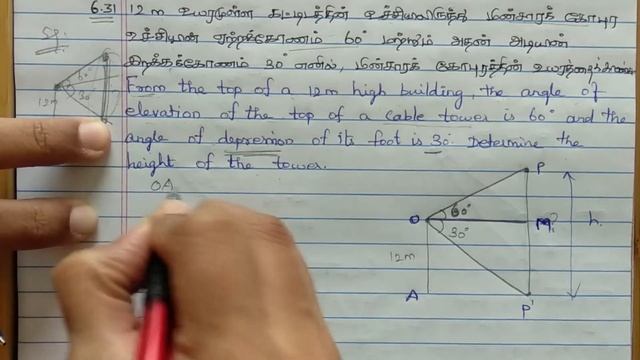 6.31 12 m உயரமுள்ள கட்டிடத்தின் உச்சியிலிருந்து மின்சாரக் கோபுர
உச்சியின் ஏற்றக்கோணம் 60° மற்றும் அதன் அடியின்
இறக்கக்கோணம் 30° எனில், மின்சாரக் கோபுரத்தின் உயரத்தைக்காண்க
From the top of a 12m high building, the angle of
elevation of the top of a cable tower is 60° and the
angle of depression of its foot is 30°. Determine the
height of the tower.
OA
60°
30°
12m
P
O
60°
M
30°
h
12m
A
P'